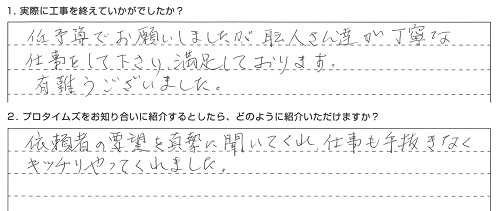 1. 実際に工事を終えていかがでしたか？
低予算でお願いしましたが 職人さん達が丁寧な
仕事をして下さり、満足しております。
有難うございました。
2. プロタイムズをお知り合いに紹介するとしたら、どのように紹介いただけますか？
依頼者の要望を真摯に聞いてくれ、仕事も手抜きなく
キッチリやってくれました。